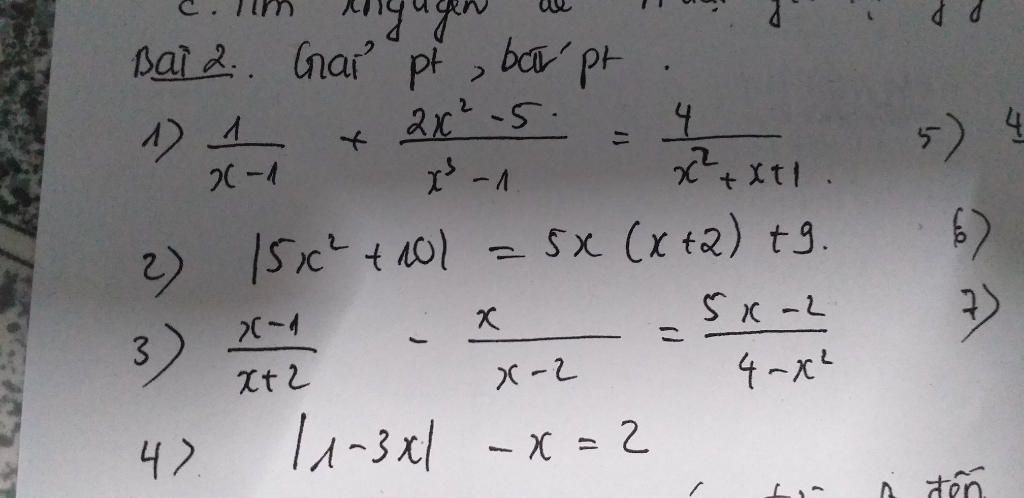 c. Tìm x nguyên để
Bài 2. Giải pt, bất pt.
1) 1/(x-1) + (2x² - 5)/(x³ - 1) = 4/(x² + x + 1). 5) 4
2) |5x² + 10| = 5x (x+2) + 9. 6)
3) (x-1)/(x+2) - x/(x-2) = (5x - 2)/(4 - x²) 7)
4) |1 - 3x| - x = 2